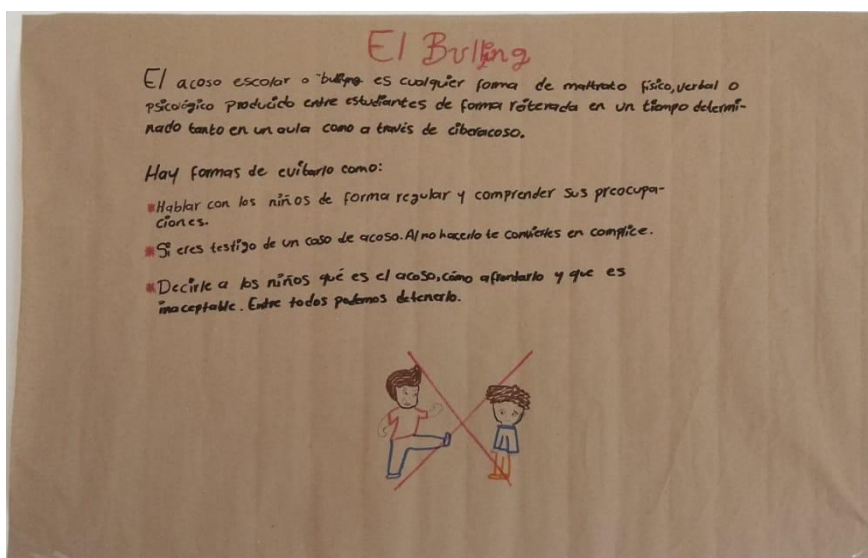 El Bullying
El acoso escolar o bullying es cualquier forma de maltrato físico, verbal o
psicológico producido entre estudiantes de forma reiterada en un tiempo determi-
nado tanto en un aula como a través de ciberacoso.
Hay formas de evitarlo como:
*Hablar con los niños de forma regular y comprender sus preocupa-
ciones.
*Si eres testigo de un caso de acoso. Al no hacerlo te conviertes en complice.
*Decirle a los niños qué es el acoso, cómo afrontarlo y que es
inaceptable. Entre todos podemos detenerlo.